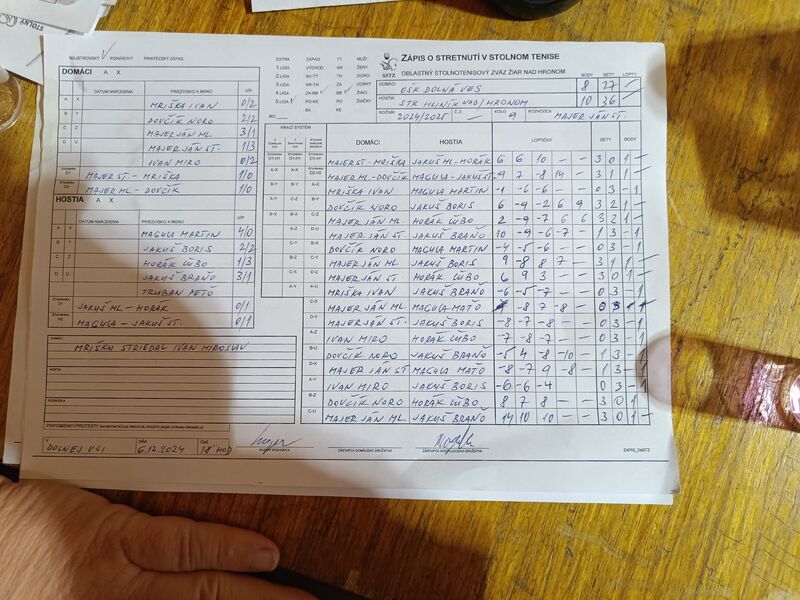 MAJSTROVSKÝ ✓ POHÁROVÝ PRIATEĽSKÝ ZÁPAS
DOMÁCI A X
DÁTUM NARODENIA PRIEZVISKO A MENO V/P
A X MRIŠKA IVAN 0/2
B Y DOVČÍK NORO 2/2
C Z MAJER JÁN ML. 3/1
D U MAJER JÁN ST. 1/3
IVAN MIRO 0/2
ŠTVORHRA D1 MAJER ST - MRIŠKA 1/0
ŠTVORHRA D2 MAJER ML - DOVČÍK 1/0
HOSTIA A X
DÁTUM NARODENIA PRIEZVISKO A MENO V/P
MAGULA MARTIN 4/0
JAKUŠ BORIS 2/2
HORÁK ĽUBO 1/3
JAKUŠ BRAŇO 3/1
TRUBAN PEŤO
JAKUŠ ML - HORÁK 0/1
MAGULA - JAKUŠ ST. 0/1
DOMÁCI
MRIŠKU STRIEDAL IVAN MIROSLAV
HOSTIA
ROZHODCA
PRIPOMIENKY/PROTESTY
V DOLNEJ VSI DŇA 6.12.2024 ČAS 18 HOD
EXTRA ZÁPAD TT MUŽI
1.LIGA VÝCHOD NR ŽENY
2.LIGA BA-TT TN DORCI
3.LIGA NR-TN ZA DORKY
4.LIGA ZA-BB BB ŽIACI
5.LIGA PO-KE PO ŽIAČKY
MO BA KE
SSTZ
ZÁPIS O STRETNUTÍ V STOLNOM TENISE
OBLASTNÝ STOLNOTENISOVÝ ZVÄZ ŽIAR NAD HRONOM
BODY SETY LOPTY
DOMÁCI OŠK DOLNÁ VES 8 27 —
HOSTIA STK HLINÍK NAD/HRONOM 10 36 —
ROČNÍK 2024/2025 Č.Z. KOLO 9 ROZHODCA MAJER JÁN ST.
HRACÍ SYSTÉM
DOMÁCI HOSTIA LOPTIČKY SETY BODY
MAJER ST. - MRIŠKA JAKUŠ ML - HORÁK 6 6 10 — — 3 0 1 —
MAJER ML - DOVČÍK MAGULA - JAKUŠ ST. 9 7 -8 14 — 3 1 1 —
MRIŠKA IVAN MAGULA MARTIN -1 -6 -6 — — 0 3 — 1
DOVČÍK NORO JAKUŠ BORIS 6 -9 -2 6 9 3 2 1 —
MAJER JÁN ML HORÁK ĽUBO 2 -9 -7 6 6 3 2 1 —
MAJER JÁN ST. JAKUŠ BRAŇO 10 -9 -6 -7 — 1 3 — 1
DOVČÍK NORO MAGULA MARTIN -4 -5 -6 — — 0 3 — 1
MAJER JÁN ML JAKUŠ BORIS 9 -8 8 7 — 3 1 1 —
MAJER JÁN ST. HORÁK ĽUBO 6 9 3 — — 3 0 1 —
MRIŠKA IVAN JAKUŠ BRAŇO -6 -5 -7 — — 0 3 — 1
MAJER JÁN ML MAGULA MAŤO -8 7 -8 — 3 — 1
MAJER JÁN ST. JAKUŠ BORIS -8 -7 -8 — — 0 3 — 1
IVAN MIRO HORÁK ĽUBO -7 -8 -7 — — 0 3 — 1
DOVČÍK NORO JAKUŠ BRAŇO -5 4 -8 -10 — 1 3 — 1
MAJER JÁN ST MAGULA MAŤO -8 -7 9 -8 — 1 3 — 1
IVAN MIRO JAKUŠ BORIS -6 -6 -4 0 3 — 1
DOVČÍK NORO HORÁK ĽUBO 8 7 8 — — 3 0 1
MAJER JÁN ML JAKUŠ BRAŇO 14 10 10 — — 3 0 1 —
HLAVNÝ ROZHODCA ZÁSTUPCA DOMÁCEHO DRUŽSTVA ZÁSTUPCA HOSŤUJÚCEHO DRUŽSTVA ZÁPIS_OSSTZ